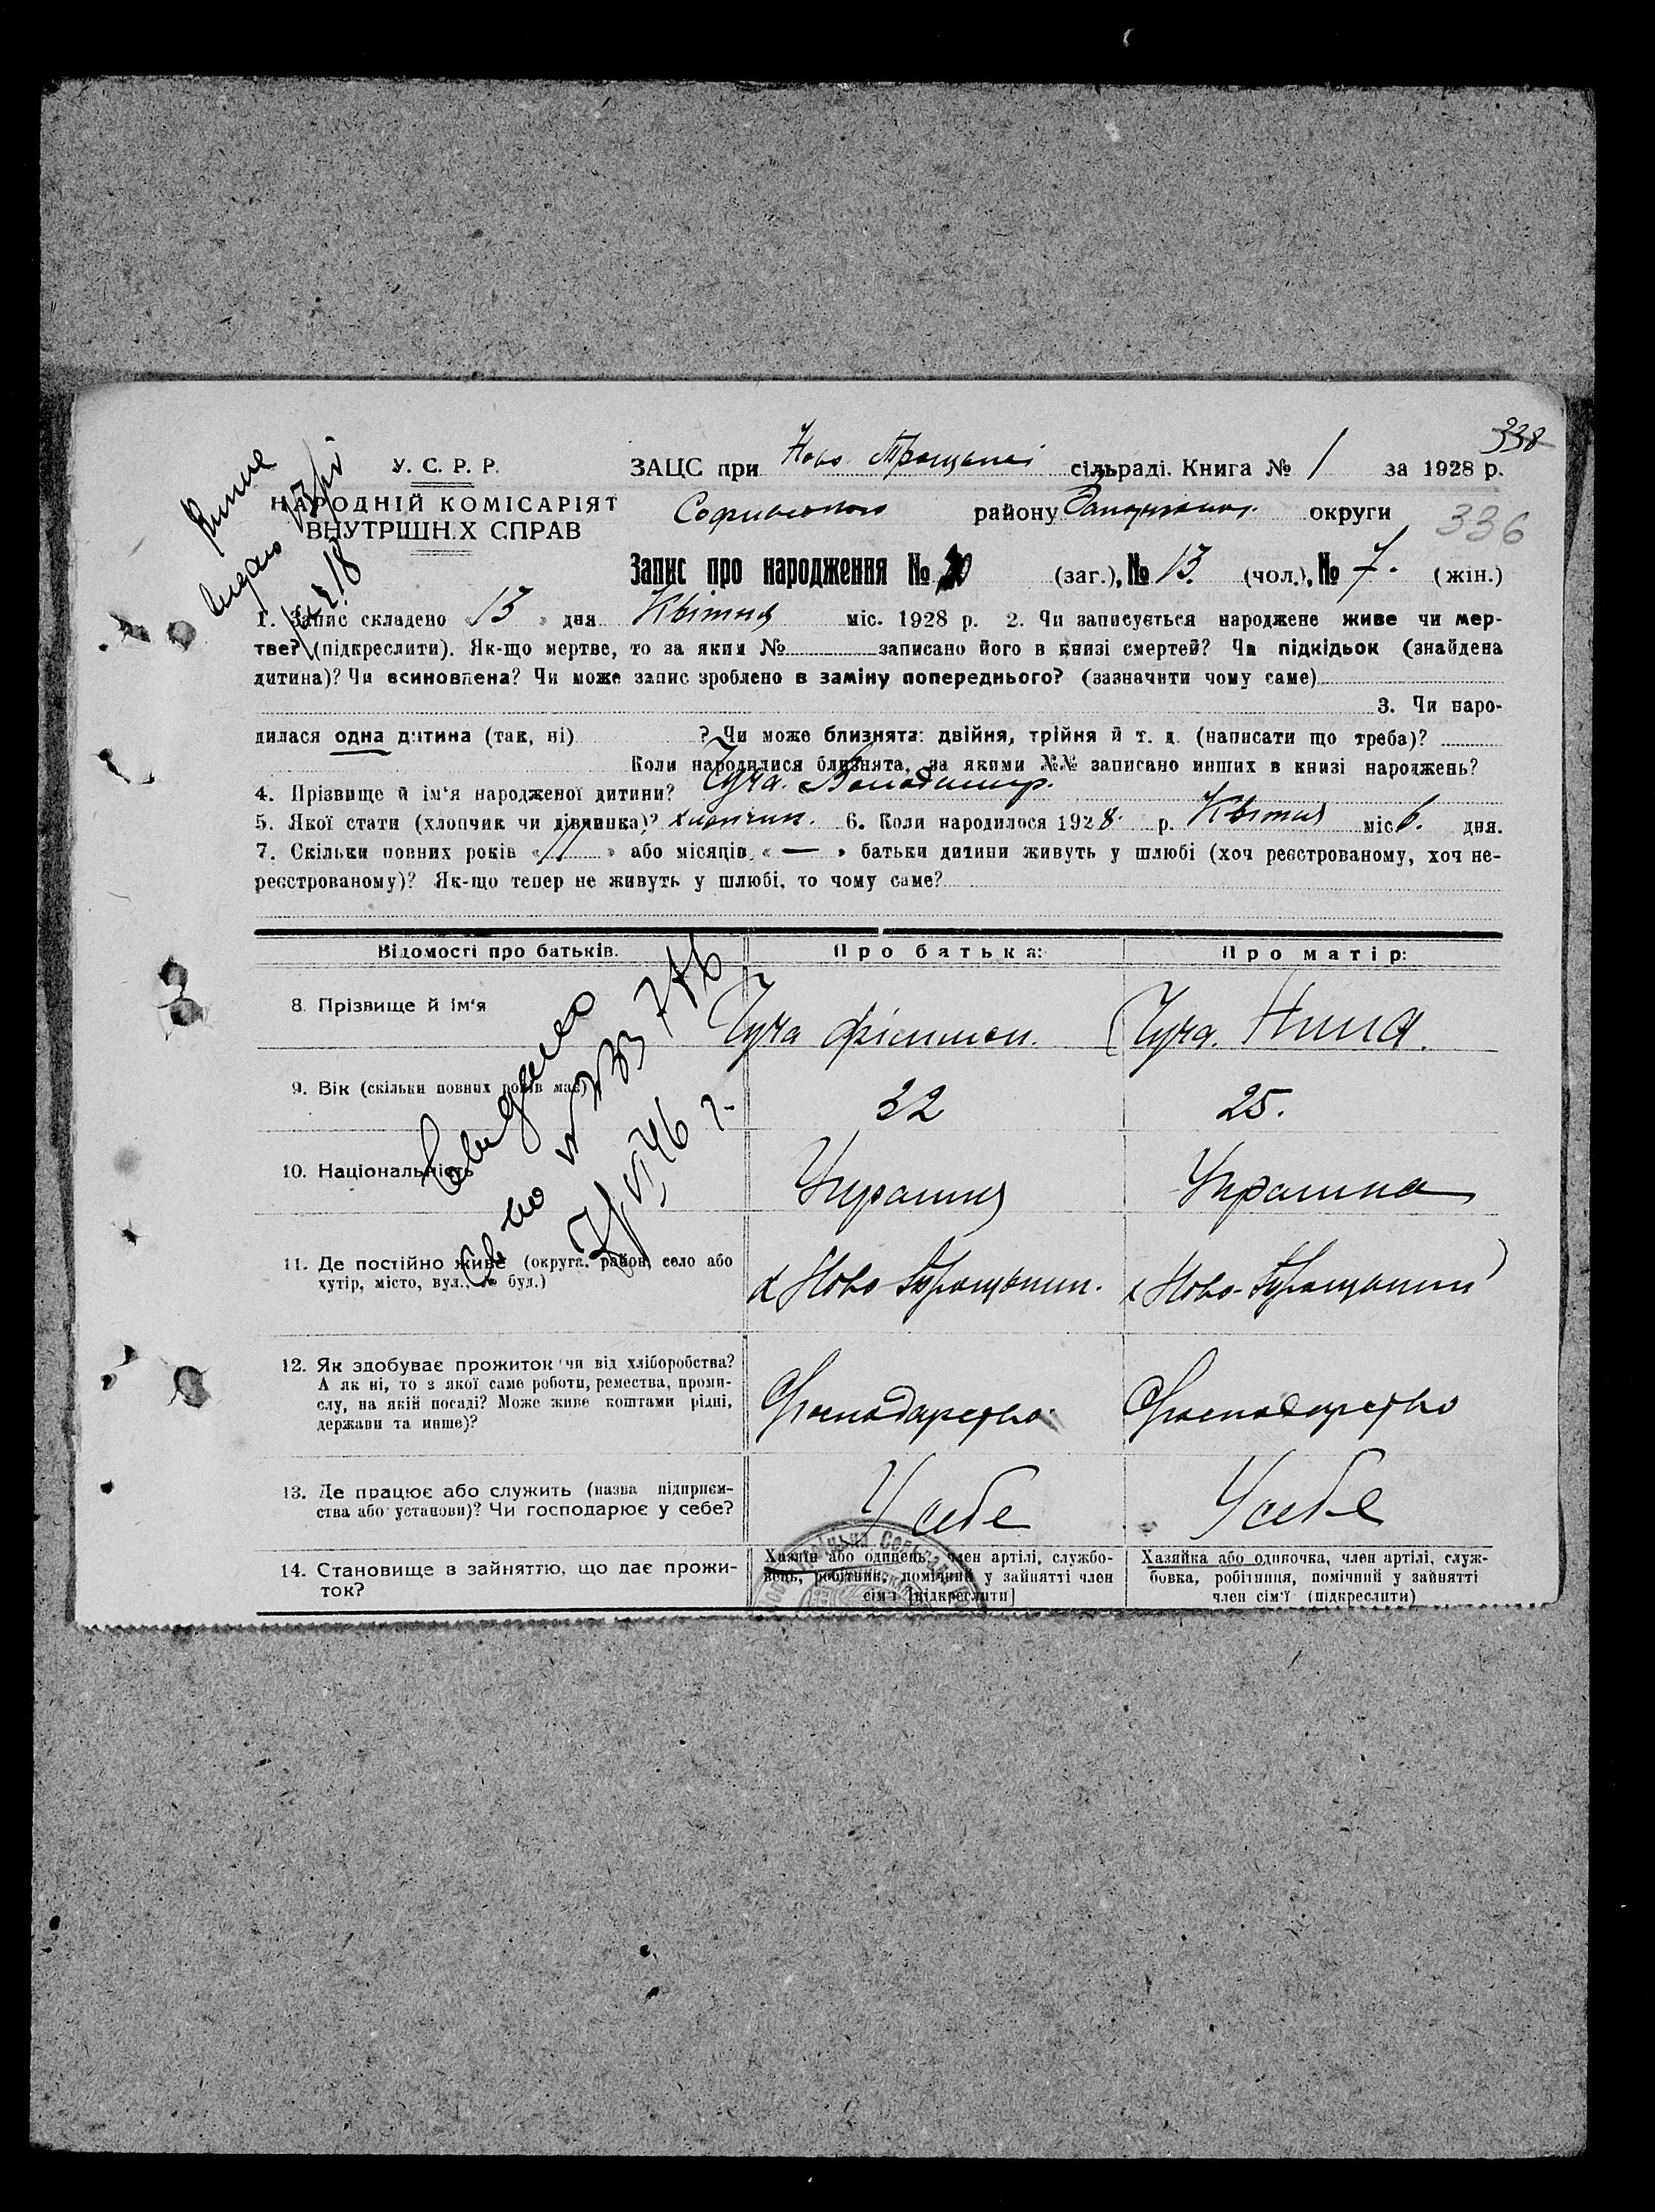 338
У. С. Р. Р.
НАРОДНІЙ КОМІСАРІЯТ
ВНУТРІШН.Х СПРАВ
ЗАЦС при Ново сільраді. Книга № 1 за 1928 р.
району округи
336
Запис про народження № (заг.), № 13. (чол.), № 7. (жін.)
1. Запис складено « 13 » дня Квітня міс. 1928 р. 2. Чи записується народжене живе чи мер-
тве? (підкреслити). Як-що мертве, то за яким № записано його в книзі смертей? Чи підкідьок (знайдена
дитина)? Чи всиновлена? Чи може запис зроблено в заміну попереднього? (зазначити чому саме)
3. Чи наро-
дилася одна дитина (так, ні) ? Чи може близнята: двійня, трійня й т. д. (написати що треба)?
Коли народилися близнята, за якими №№ записано инших в книзі народжень?
4. Прізвище й ім'я народженої дитини? Володимир.
5. Якої стати (хлопчик чи дівчинка)? хлопчик. 6. Коли народилося 1928. р. Квітня міс. 6. дня.
7. Скільки повних років « 11 » або місяців « — » батьки дитини живуть у шлюбі (хоч реєстрованому, хоч не-
реєстрованому)? Як-що тепер не живуть у шлюбі, то чому саме?
Відомості про батьків. Про батька: Про матір:
8. Прізвище й ім'я
Нина.
9. Вік (скільки повних років має) 32 25.
10. Національність
Українка
11. Де постійно живе (округа, район, село або
хутір, місто, вул., № буд.)
х Ново х Ново-
12. Як здобуває прожиток чи від хліборобства?
А як ні, то з якої саме роботи, ремества, проми-
слу, на якій посаді? Може живе коштами рідні,
держави та инше)?
Господарство. Господарство
13. Де працює або служить (назва підприєм-
ства або установи)? Чи господарює у себе?
У себе У себе
14. Становище в зайняттю, що дає прожи-
ток?
Хазяїн або одинець, член артілі, службо-
вець, робітник, помічний у зайнятті член
сім'ї [підкреслити]
Хазяйка або одиночка, член артілі, служ-
бовка, робітниця, помічний у зайнятті
член сім'ї (підкреслити)